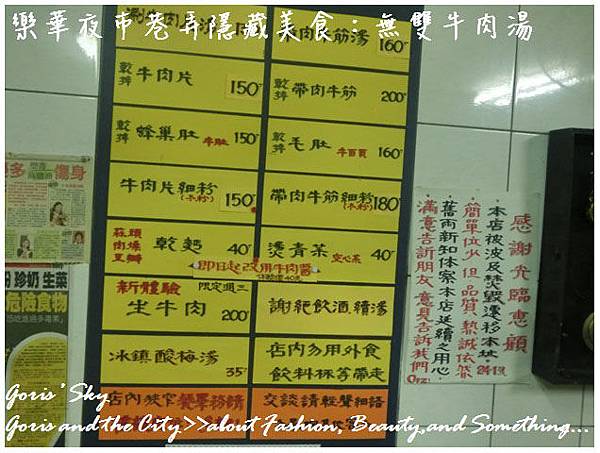 樂華夜市巷弄隱藏美食：無雙牛肉湯
帶肉牛筋湯 160
乾拌 牛肉片 150
乾拌 帶肉牛筋 200
乾拌 蜂巢肚 牛肚 150
乾拌 毛肚 牛百頁 160
牛肉片細粉 150
(冬粉)
帶肉牛筋細粉 180
(冬粉)
蒜頭 肉燥 豆瓣 乾麵 40
燙青菜 空心菜 40
即日起改用牛肉醬
新體驗 限定週三
生牛肉 200
謝絕飲酒續湯
冰鎮酸梅湯 35
店內勿用外食
飲料杯等帶走
店內狹窄
交談請輕聲細語
感謝光臨惠顧
本店被波及焚毀遷移本址
簡單位少但品質熱誠依舊
舊雨新知体察本店延續之用心
滿意告訴朋友意見告訴我們
多 傷身
珍奶 生菜
危險食物
Goris' Sky
Goris and the City>>about Fashion, Beauty,and Something...